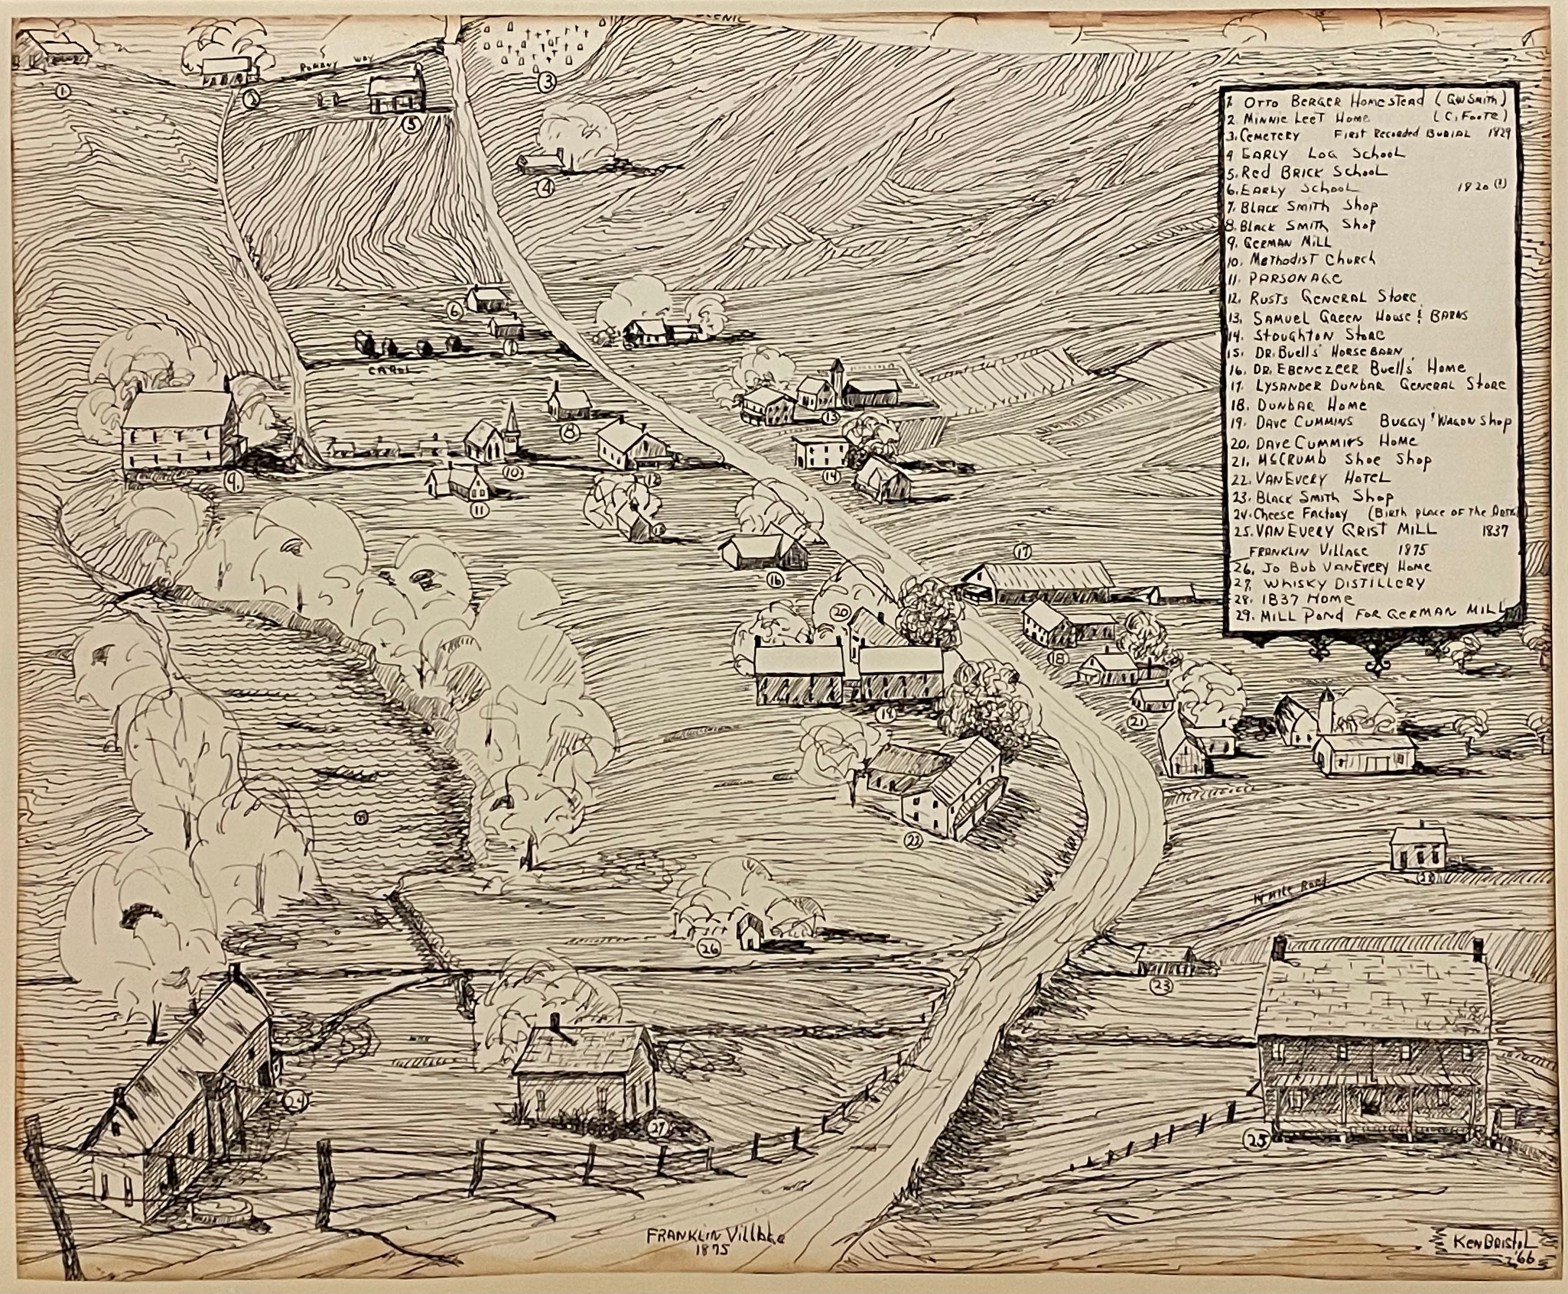 SCENIC
ROMANY WAY
1
2
3
5
4
1. OTTO BERGER HOMESTEAD (GWSMITH)
2. MINNIE LEET HOME (C. FOOTE)
3. CEMETERY FIRST RECORDED BURIAL 1829
4 EARLY LOG SCHOOL
5. RED BRICK SCHOOL
6. EARLY SCHOOL 1820 (?)
7. BLACK SMITH SHOP
8. BLACK SMITH SHOP
9. GERMAN MILL
10. METHODIST CHURCH
11. PARSONAGE
12. RUSTS GENERAL STORE
13. SAMUEL GREEN HOUSE & BARNS
14. STOUGHTON STORE
15. DR. BUELL'S HORSEBARN
16. DR. EBENEZEER BUELL'S HOME
17. LYSANDER DUNBAR GENERAL STORE
18. DUNBAR HOME
19. DAVE CUMMINS BUGGY & WAGON SHOP
20. DAVE CUMMINS HOME
21. MCCRUMB SHOE SHOP
22. VANEVERY HOTEL
23. BLACK SMITH SHOP
24. CHEESE FACTORY (BIRTH PLACE OF THE
25. VANEVERY GRIST MILL 1837
FRANKLIN VILLAGE 1875
26. JO BUB VANEVERY HOME
27. WHISKY DISTILLERY
28. 1837 HOME
29. MILL POND FOR GERMAN MILL
6
7
CAROL
8
13
9
10
12
14
11
15
16
17
20
18
19
21
29
22
28
26
23
24
27
25
FRANKLIN VILLAGE
1875
KEN BRISTOL
'66